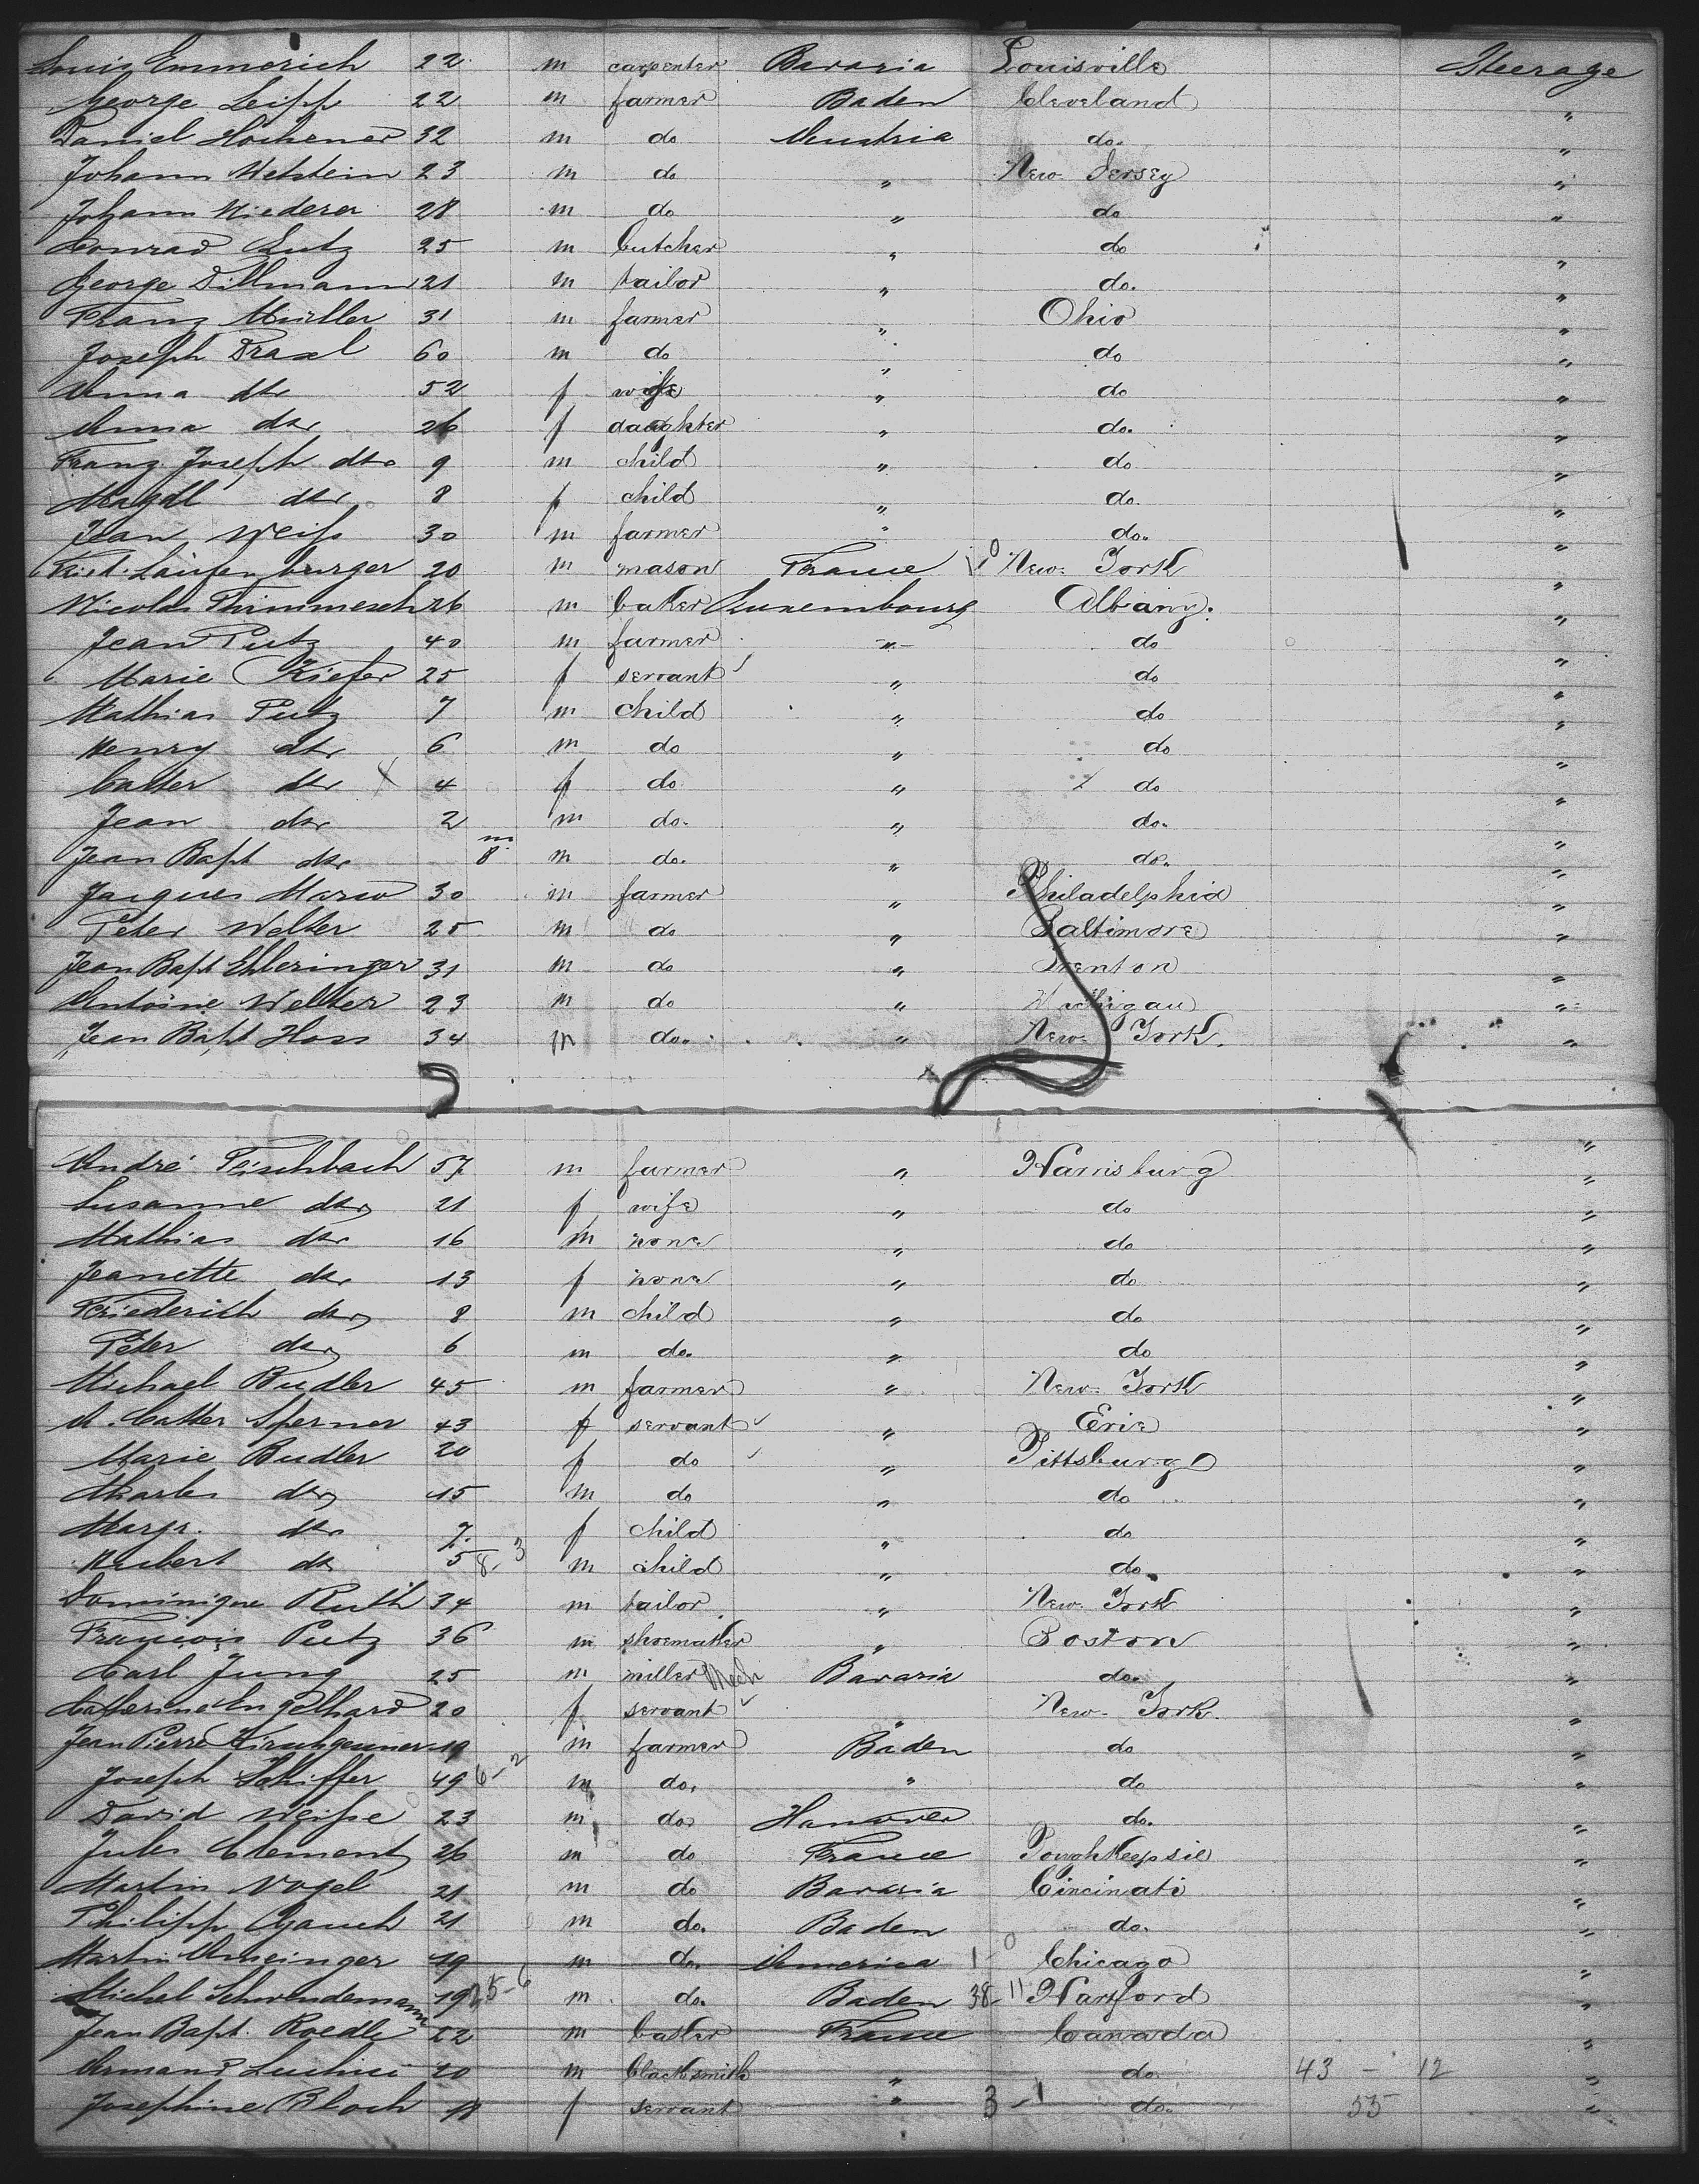 Louis Emmerich 22 m carpenter Bavaria Louisville Steerage
George Leipp 22 m farmer Baden Cleveland "
Daniel 32 m do Austria do. "
Johann 23 m do " New Jersey "
Johann Niederer 28 m do " do "
Conrad Lutz 25 m butcher " do "
George Dillmann 21 m tailor " do. "
Franz Müller 31 m farmer " Ohio "
Joseph Draxl 60 m do " do "
Anna dto 52 f wife " do "
Anna dto 26 f daughter " do. "
Franz Joseph dto 9 m child " do "
Magdl dto 8 f child " do. "
Jean Weiss 30 m farmer " do. "
Laufenburger 20 m mason France 1 0 New York "
Nicolas Thimmesch 26 m baker Luxembourg Albany. "
Jean Putz 40 m farmer " do "
Marie Kiefer 25 f servant " do "
Mathias Putz 7 m child " do "
Henry dto 6 m do " do "
Cather dto X 4 f do " X do "
Jean dto 2 m do. " do. "
Jean Bapt dto 8 m m do. " do. "
Jacques Mario 30 m farmer " Philadelphia "
Peter Welter 25 m do " Baltimore "
Jean Bapt Ehleringer 31 m do " Trenton "
Antoine Welter 23 m do " Michigan "
Jean Bapt Hoss 34 m do. " New York. "
André Fischbach 57 m farmer " Harrisburg "
Susanne dto 21 f wife " do "
Mathias dto 16 m none " do "
Jeanette dto 13 f none " do "
Friederich dto 8 m child " do "
Peter dto 6 m do. " do "
Michael Budler 45 m farmer " New York "
A. Cather Sperner 43 f servant " Erie "
Marie Budler 20 f do " Pittsburg "
Charles dto 15 m do " do "
Margr. dto 7. f child " do "
Hubert dto 5 8-3 m child " do. "
Dominique Ruth 34 m tailor " New York "
François Putz 36 m shoemaker " Boston "
Carl Jung 25 m miller Mech Bavaria do. "
Catherine Engelhard 20 f servant " New York. "
Jean Pierre Kirschgesner 19 m farmer Baden do "
Joseph Schiffer 49 6-2 m do. " do "
David Weisse 23 m do Hanover do. "
Jules Clement 26 m do France Poughkeepsie "
Martin Vogel 21 m do Bavaria Cincinati "
Philipp Gauch 21 m do. Baden do. "
Martin 19 m do. America 1-0 Chicago "
Michel Schwendemann 19 25-6 m do. Baden 38 11 Hartford "
Jean Bapt. Roedle 22 m baker France Canada "
Armand 20 m blacksmith " do. 43 - 12 "
Josephine Bloch 18 f servant " 3-1 do. 55 "